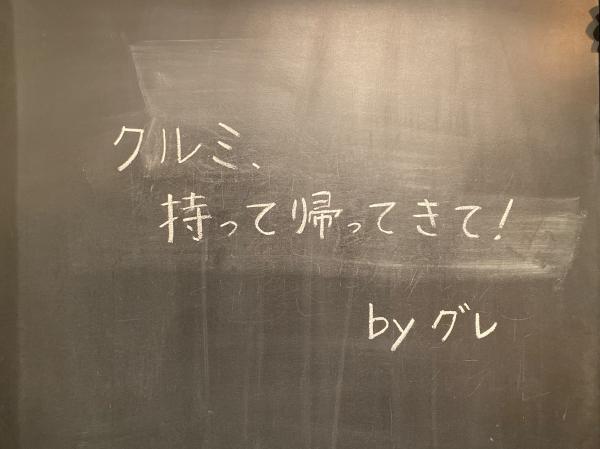 クルミ、
持って帰ってきて!
by グレ